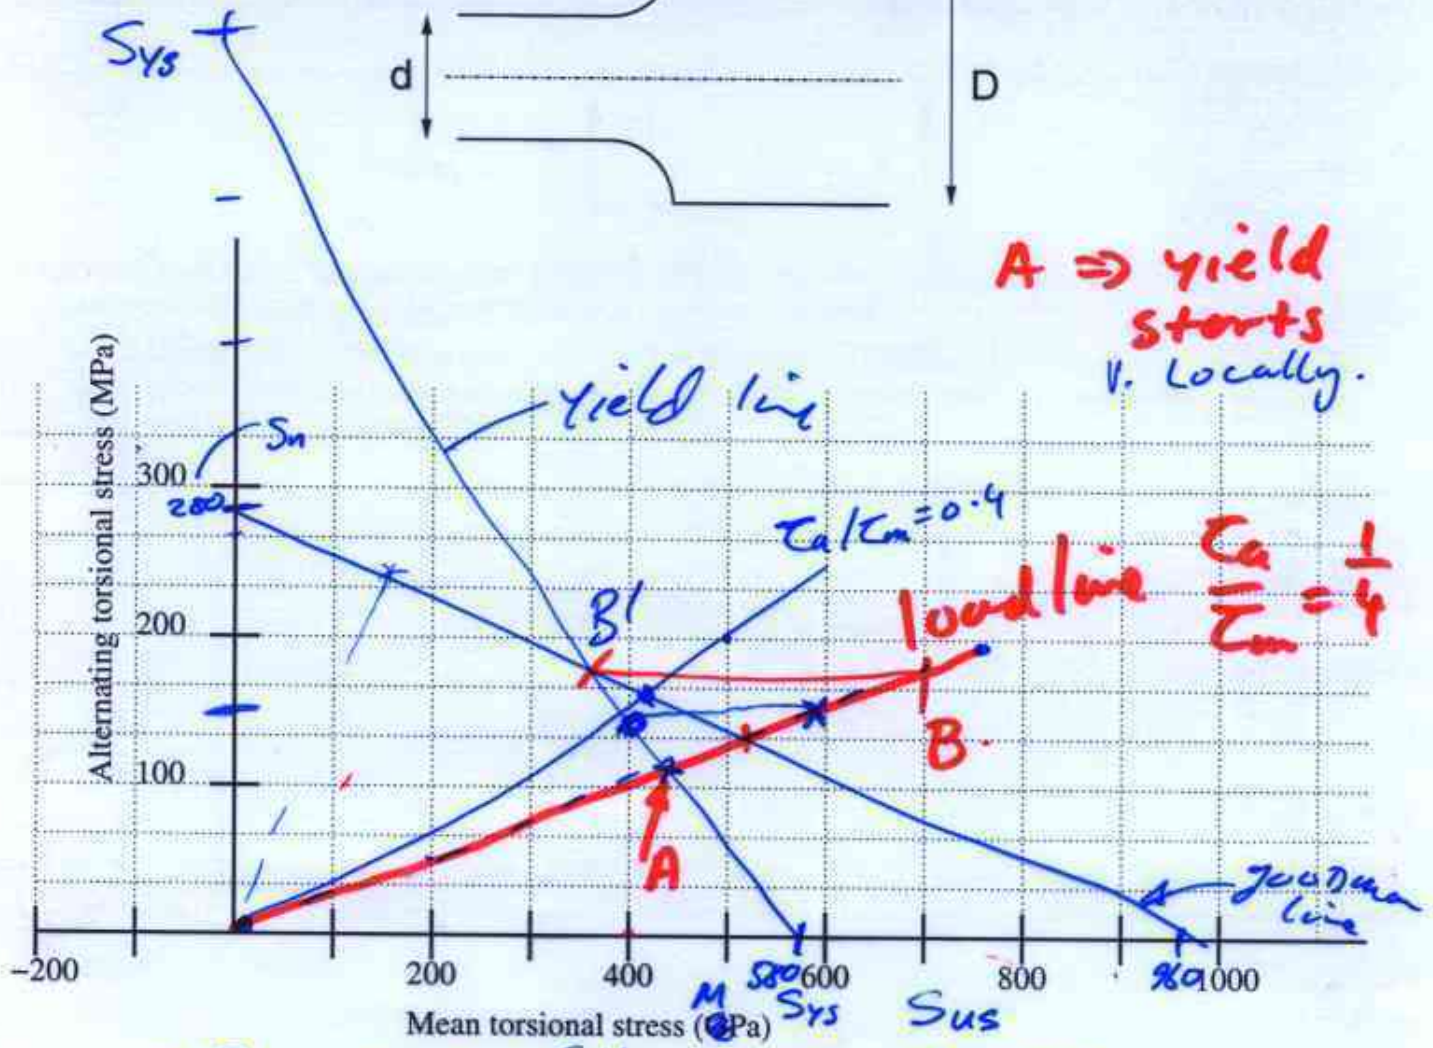 Sys
d
D
A ⇒ yield
starts
V. Locally.
Alternating torsional stress (MPa)
yield line
Sn
300
280
τa/τm = 0.4
load line τa/τm = 1/4
B'
200
B.
100
A
Goodman
line
−200
200
400
580
600
800
960
1000
M
Sys
Sus
Mean torsional stress (Pa)